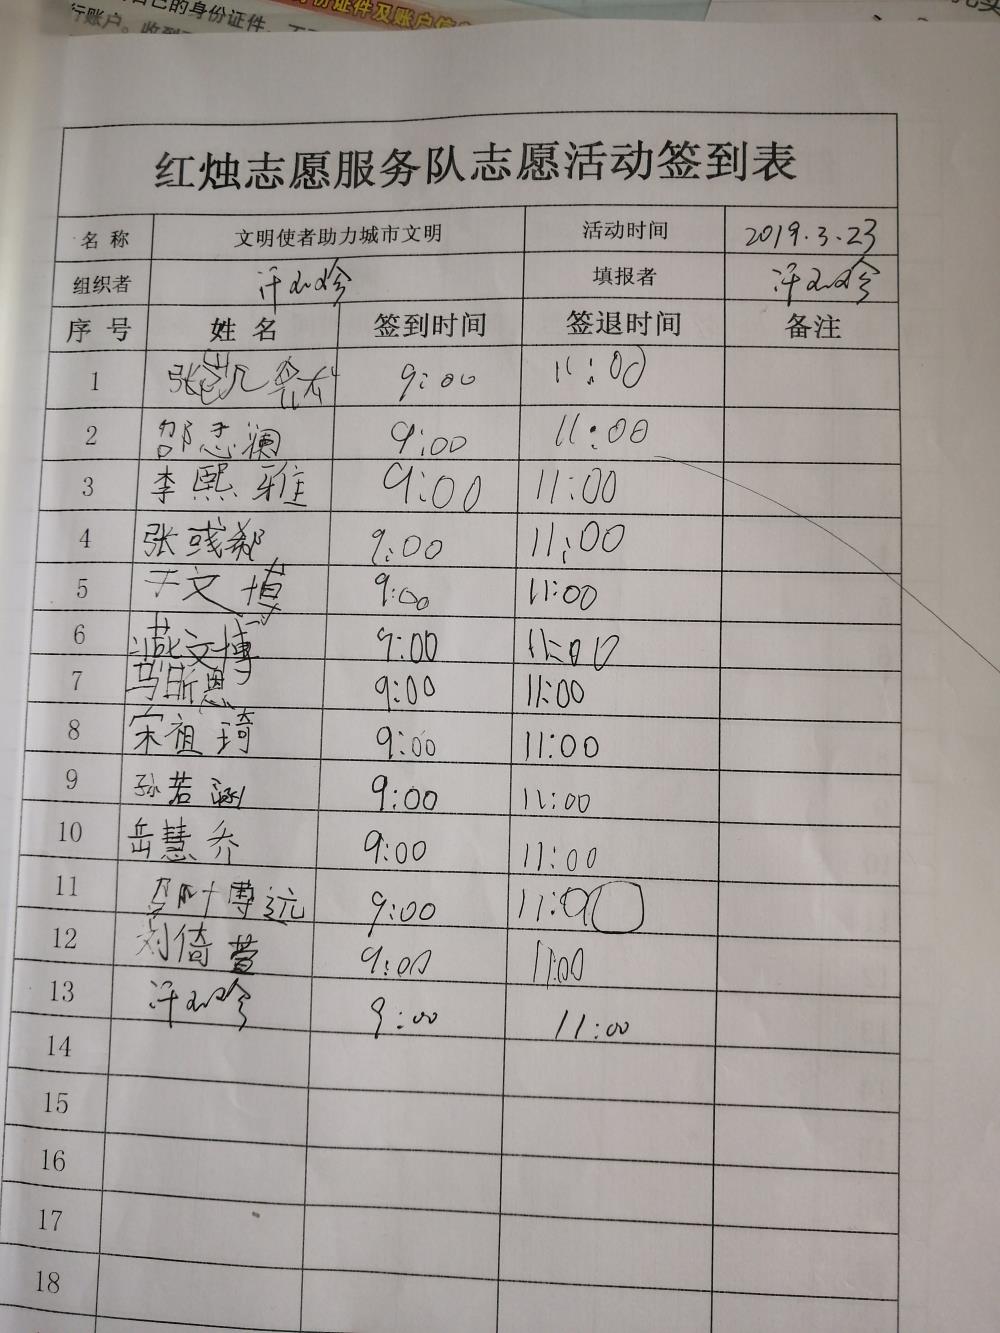 己的身份证件
份证件及账户信
行账户。收到
红烛志愿服务队志愿活动签到表
名 称 文明使者助力城市文明 活动时间 2019.3.23
组织者 填报者
序 号 姓 名 签到时间 签退时间 备注
1 张 9:00 11:00
2 邵志澜 9:00 11:00
3 李熙雅 9:00 11:00
4 张彧郗 9:00 11:00
5 于文博 9:00 11:00
6 文博 9:00 11:00
7 马昕恩 9:00 11:00
8 宋祖琦 9:00 11:00
9 孙若涵 9:00 11:00
10 岳慧乔 9:00 11:00
11 博远 9:00 11:00
12 刘倚萱 9:00 11:00
13 9:00 11:00
14
15
16
17
18